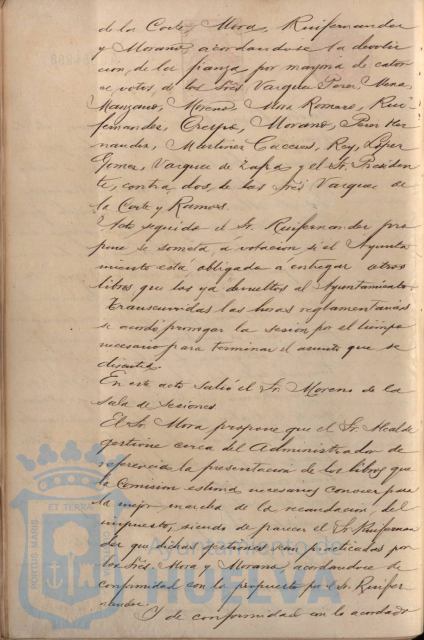 de la Corte, Mora, Ruifernandez
y Morano, acordandose la devolu-
cion, de la fianza por mayoria de cator-
ce votos de los Sres Vazquez Perez, Mena,
Manzano, Moreno, Mora Romero, Rui-
fernandez, Crespo, Morano, Perez Her-
nandez, Martinez Caceres, Rey, Lopez
Gomez, Vazquez de Zafra y el Sr. Presiden-
te, contra dos, de los Sres Vazquez de
la Corte y Ramos.
Acto seguido el Sr. Ruifernandez pro-
pone se someta a votacion si el Ayunta-
miento está obligado á entregar otros
libros que los ya devueltos al Ayuntamiento.
Transcurridas las horas reglamentarias
se acordó prorrogar la sesion por el tiempo
necesario para terminar el asunto que se
discutia.
En este acto salió el Sr. Moreno de la
sala de sesiones
El Sr. Mora propone que el Sr. Alcalde
gestione cerca del Administrador de
referencia la presentacion de los libros que
la Comision estima necesarios conocer para
la mejor marcha de la recaudacion, del
impuesto, siendo de parecer el Sr. Ruifernan-
dez que dichas gestiones sean practicadas por
los Sres Mora y Morano, acordandose de
conformidad con lo propuesto por el Sr. Ruifer-
nandez.
Y de conformidad con lo acordado
PORTUS MARIS
ET TERRÆ
Ayuntamiento de
HUELVA